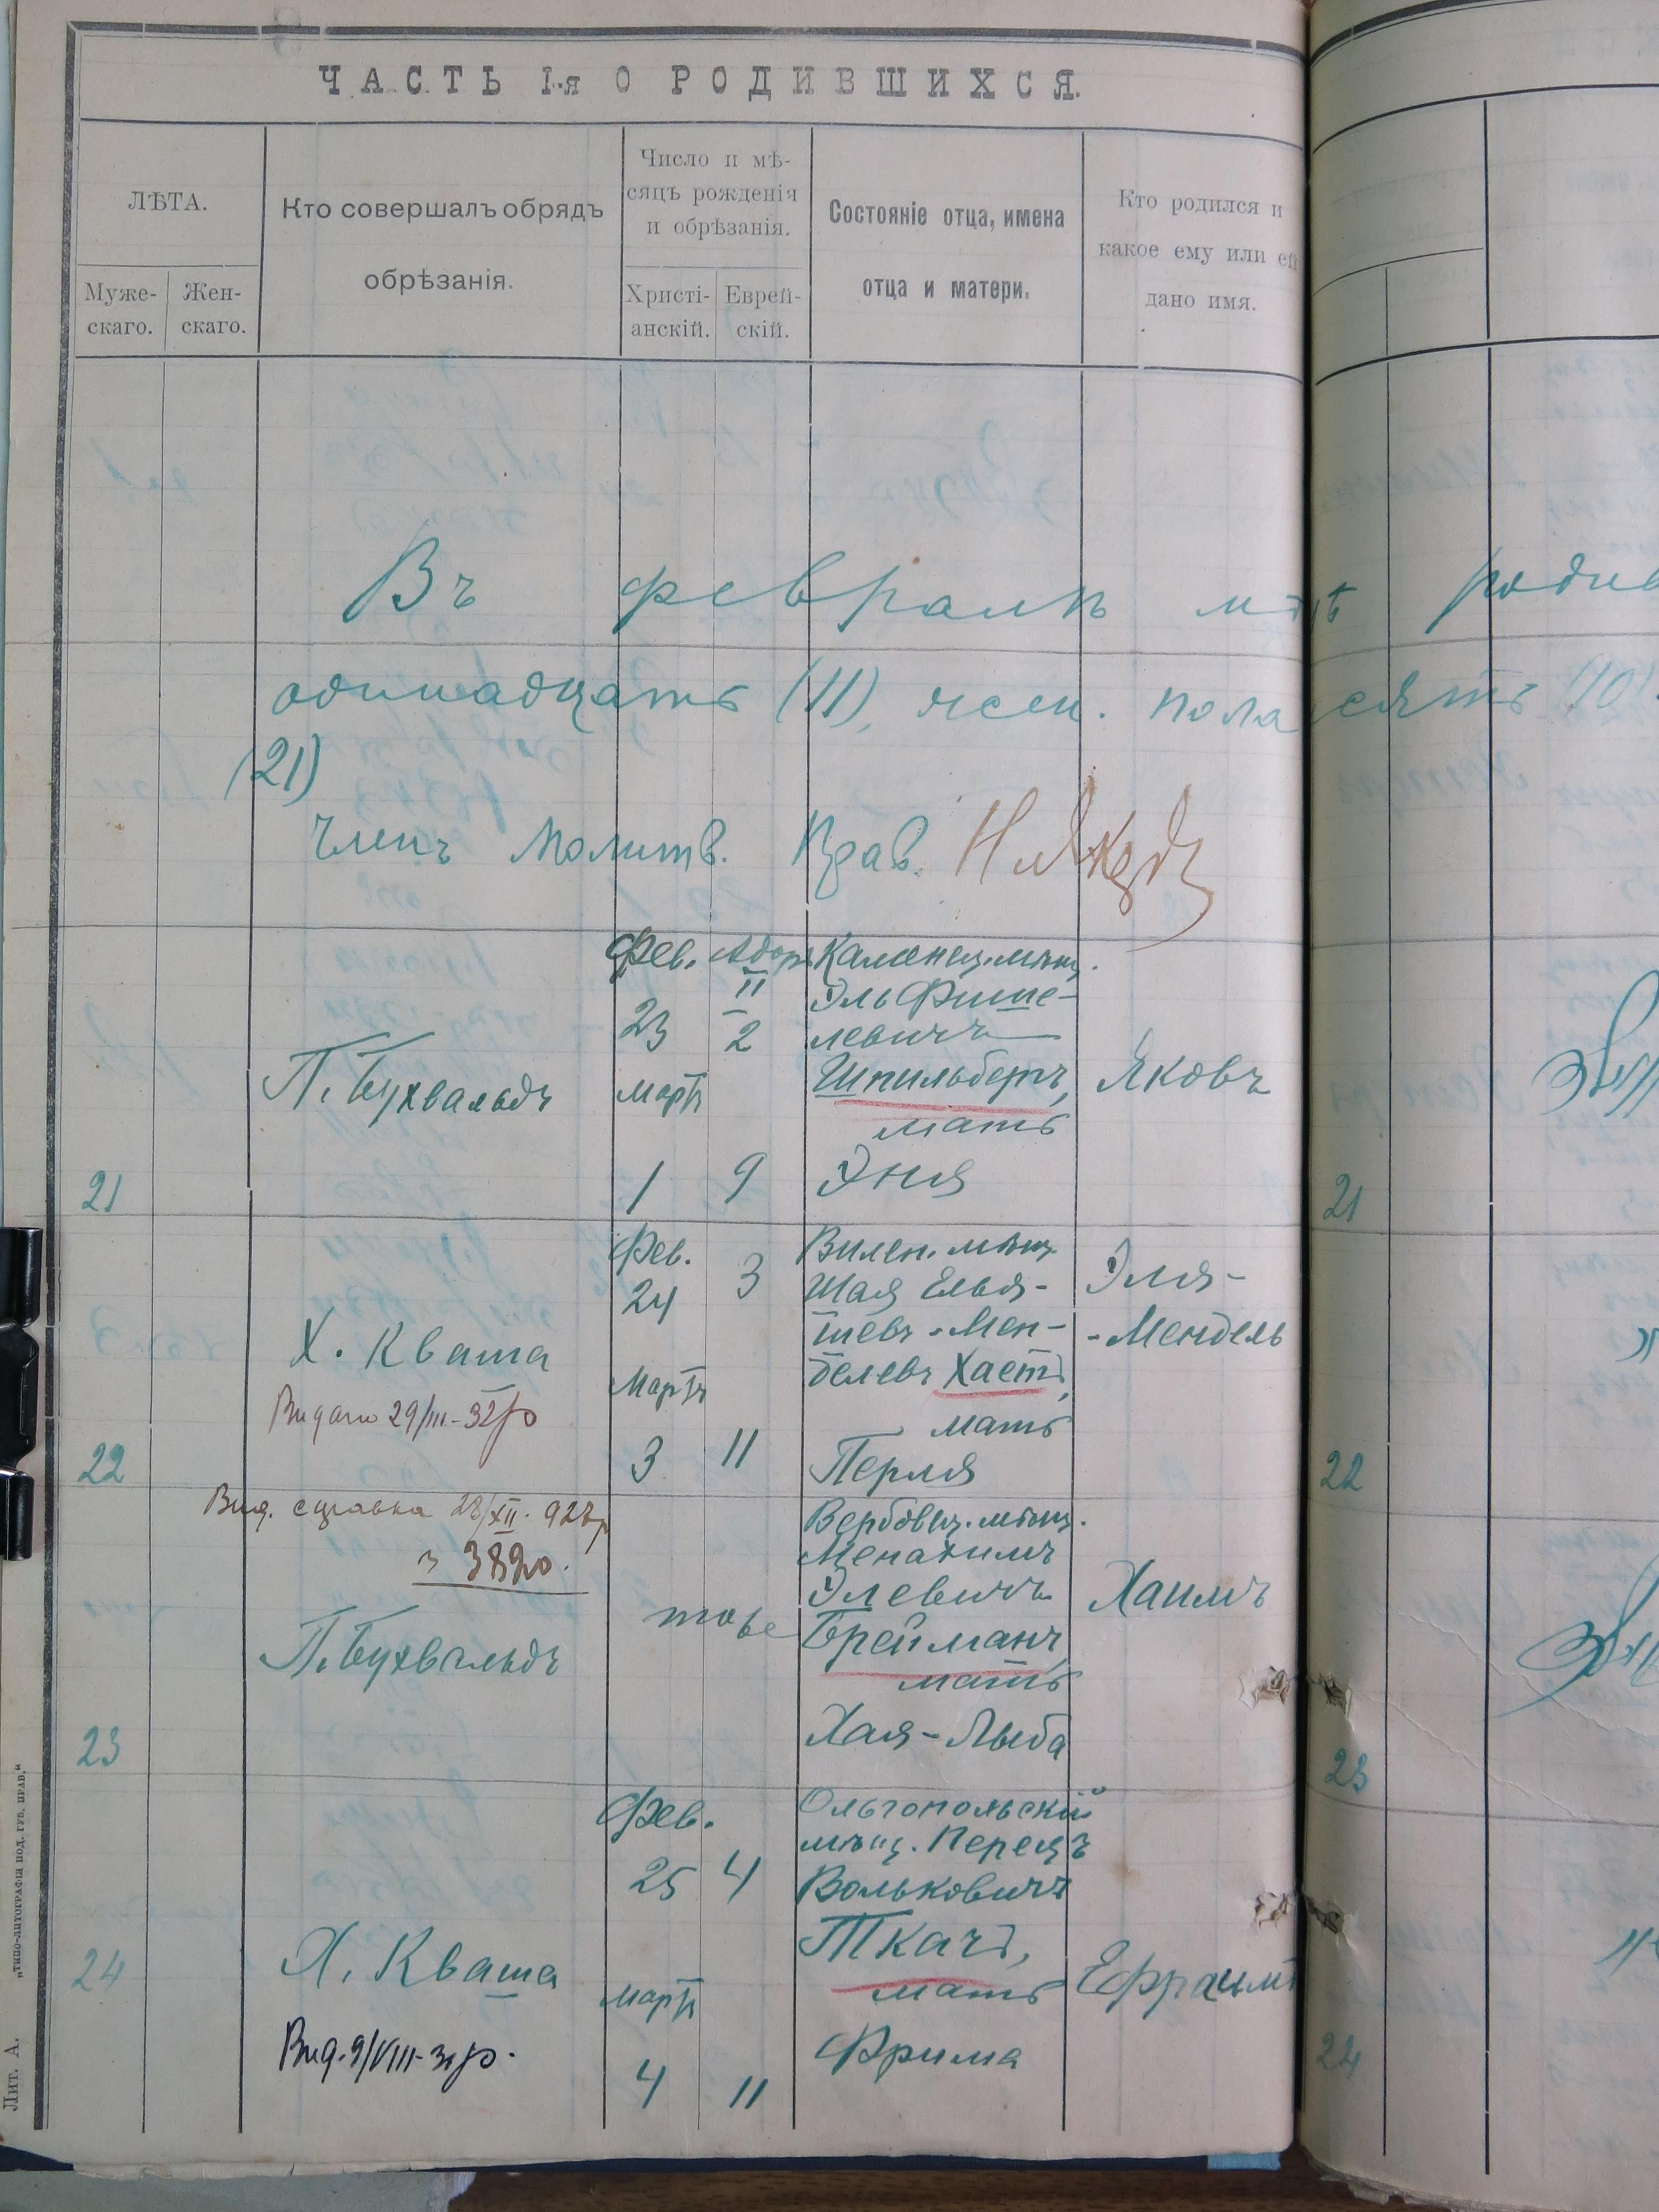 ЧАСТЬ I-я О РОДИВШИХСЯ.
ЛѢТА.
Муже-
скаго.
Жен-
скаго.
Кто совершалъ обрядъ
обрѣзанія.
Число и мѣ-
сяцъ рожденія
и обрѣзанія.
Христі-
анскій.
Еврей-
скій.
Состояніе отца, имена
отца и матери.
Кто родился и
какое ему или ей
дано имя.
Въ февралѣ
одинадцать (11), жен. пола
(21)
Членъ Молитв. Прав.
21
П. Бухвальдъ
Фев.
23
Мартъ
1
Адаръ
II
2
9
Каменец. мѣщ.
Эль Фише-
левичъ
Шпильбергъ,
мать
Эня
Яковъ
22
Х. Кваша
Видано 29/III-32 р
Фев.
24
Мартъ
3
3
11
Вилен. мѣщ.
Шая Елья-
шевъ-Мен-
делевъ Хаетъ,
мать
Перля
Эля-
-Мендель
Вид. справка 28/XII. 928 р
з 3820.
23
П. Бухвальдъ
тоже
Вербовец. мѣщ.
Менахимъ
Элевичъ
Брейманъ,
мать
Хая-Лыба
Хаимъ
24
Х. Кваша
Вид. 9/VIII-31 р.
Фев.
25
Мартъ
4
4
11
Ольгопольскій
мѣщ. Перецъ
Вольковичъ
Ткачъ,
мать
Фрима
Ефраимъ
Лит. А.
„Типо-литографія Под. Губ. Прав."
сятъ (10)
21
22
23
24